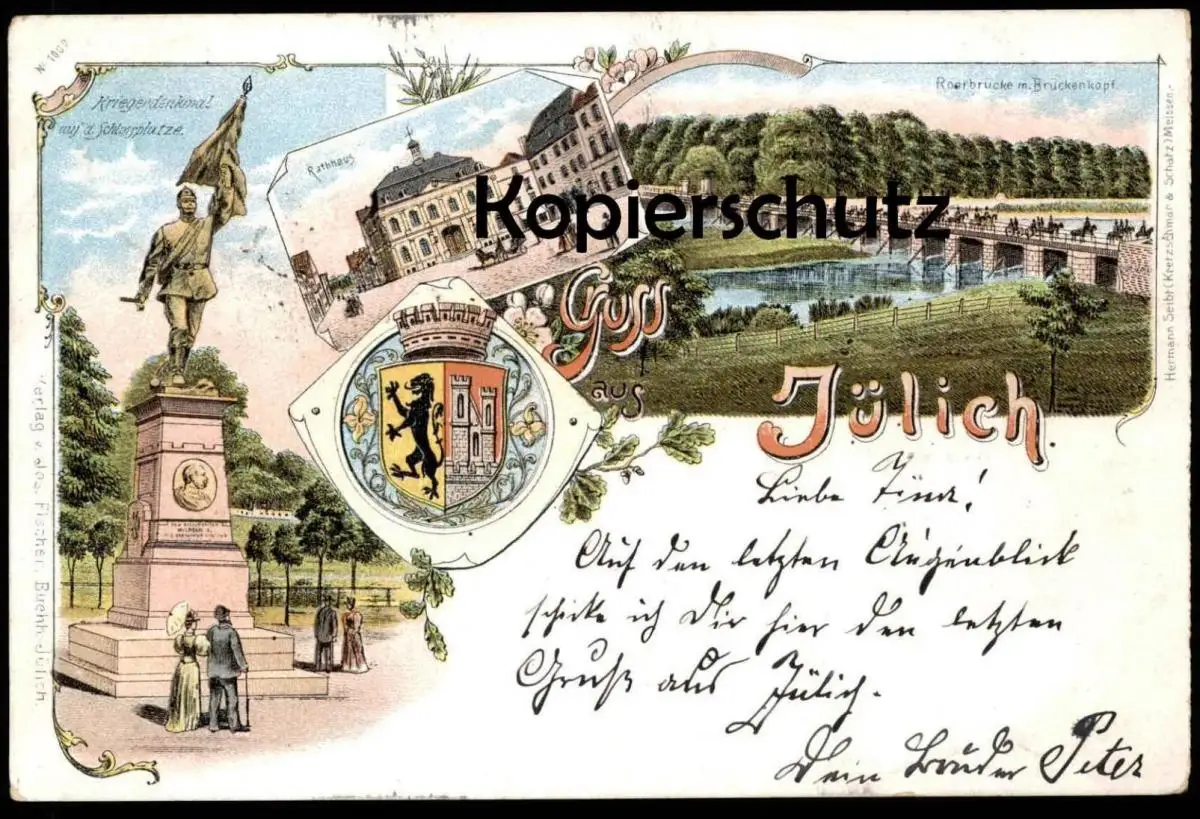 Nr. 1007
Kriegerdenkmal
auf d. Schlossplatze.
Rathhaus
Roerbrücke m. Brückenkopf
Kopierschutz
Gruss
aus
Jülich.
Hermann Seibt (Kretzschmar & Schatz) Meissen.
Verlag v. Jos. Fischer, Buchh. Jülich.
WILHELM I.
Liebe
Auf den letzten Augenblick
schicke ich Dir hier den letzten
Gruß aus Jülich.
Dein Bruder Peter